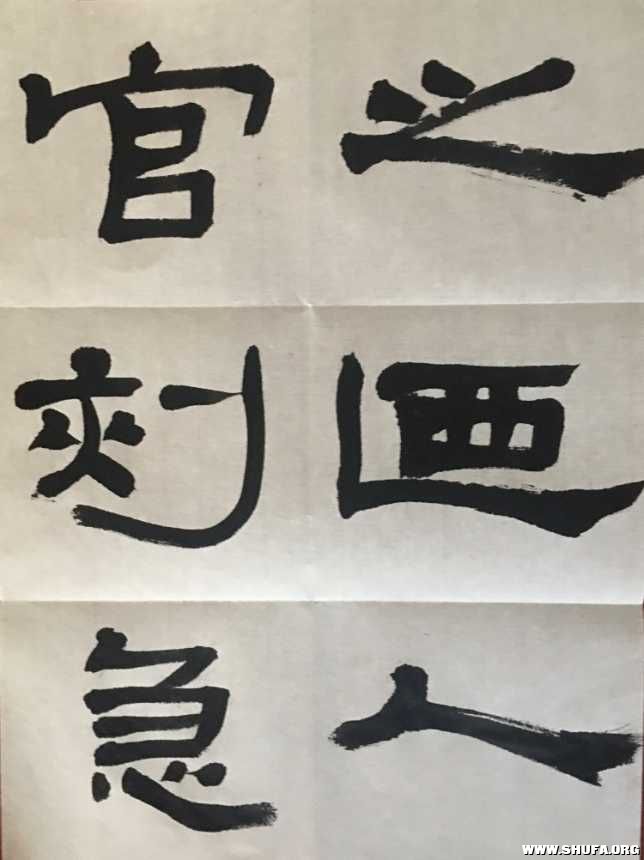 之 人
官刺急
WWW.SHUFA.ORG